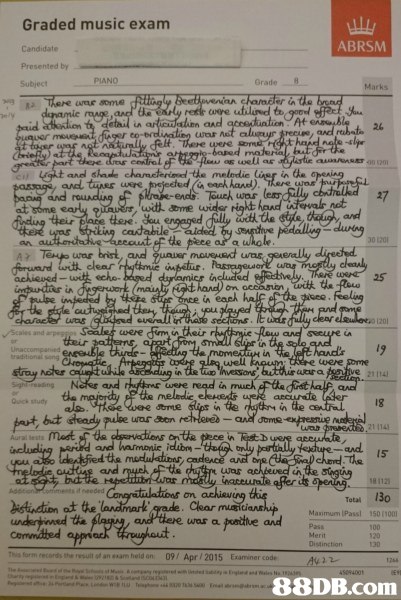 Graded music exam
ABRSM
Candidate
Presented by
Subject PIANO Grade 8 Marks
B2 There was some fittingly Beethovenian character in the broad
dynamic range, and the early rests were utilised to good effect. You
paid attention to detail in articulation and accentuation. At ensemble 26
quaver movement finger co-ordination was not always precise, and rubato
at was not naturally felt. There were some right hand note-slips
(briefly) at the Recapitulation's arpeggio-based material, but for the
greater part there was control of the flow as well as stylistic awareness
C Light and shade characterised the melodic lines in the opening
passage, and tunes were projected (in each hand). There was purposeful
pacing and rounding of phrase-ends. Touch was less fully controlled 27
at some early quavers, with some wider right hand intervals not
finding their place there. You engaged fully with the style, though, and
there was striking cantabile - aided by sensitive pedalling - during
an authoritative account of the piece as a whole. 30 (20)
A Tempo was brisk, and quaver movement was generally directed
forward with clear rhythmic impetus. Passagework was mostly cleanly
achieved - with echo-based dynamics included effectively. There were 25
impurities in fingerwork (mainly right hand) on occasion, with the flow
of pulse impeded by these slips once in each half of the piece. Feeling
for the style outweighed them, though; you played through them and some
character was glimpsed overall in these sections. It was fully clear elsewhere.
Scales and arpeggios Scales were firm in their rhythmic flow and secure in
their patterns, apart from small slips in the solo and
Unaccompanied traditional song ensemble thirds - affecting the momentum in the left hand's 19
Chromatic. Arpeggios were also well known: there were some
stray notes caught while ascending in the two inversions, but this was a positive
section. 21 (14)
Sight-reading Notes and rhythms were read in much of the first half, and
Quick study the majority of the melodic elements were accurate later 18
also. There were some slips in the rhythm in the central
part, but steady pulse was soon retrieved - and some expressive material
was presented. 21 (14)
Aural tests Most of the observations on the piece in Test D were accurate,
including period and harmonic idiom - though only partially texture - and
you also identified the modulations, cadence and one (the final) chord. The 15
melodic outline and much of the rhythm was achieved in the singing
at sight, but the repetition was mostly inaccurate after its opening. 18 (12)
Additional comments if needed Congratulations on achieving this Total 130
Distinction at the 'landmark' grade. Clear musicianship Maximum (Pass) 150 (100)
underpinned the playing, and there was a positive and Pass 100
committed approach throughout. Merit 120
Distinction 130
This form records the result of an exam held on: 09/ Apr / 2015 Examiner code: A422
88DB.com